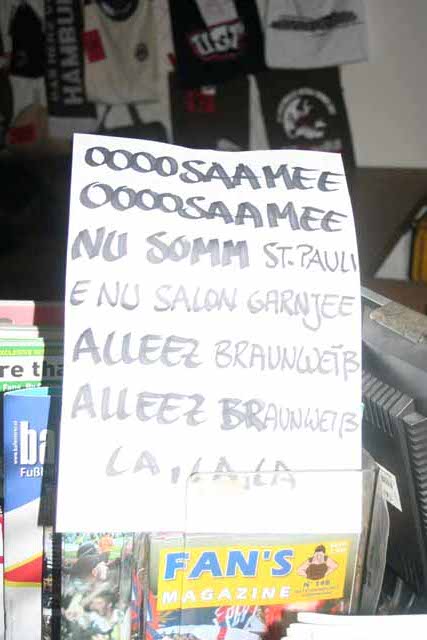 HAMBUR
OOOOSAAMEE
OOOOSAAMEE
NU SOMM ST. PAULI
E NU SALON GARNJEE
ALLEEZ BRAUNWEIß
ALLEEZ BRAUNWEIß
LA, LA, LA
re tha
ba
Fußb
FAN'S
MAGAZINE